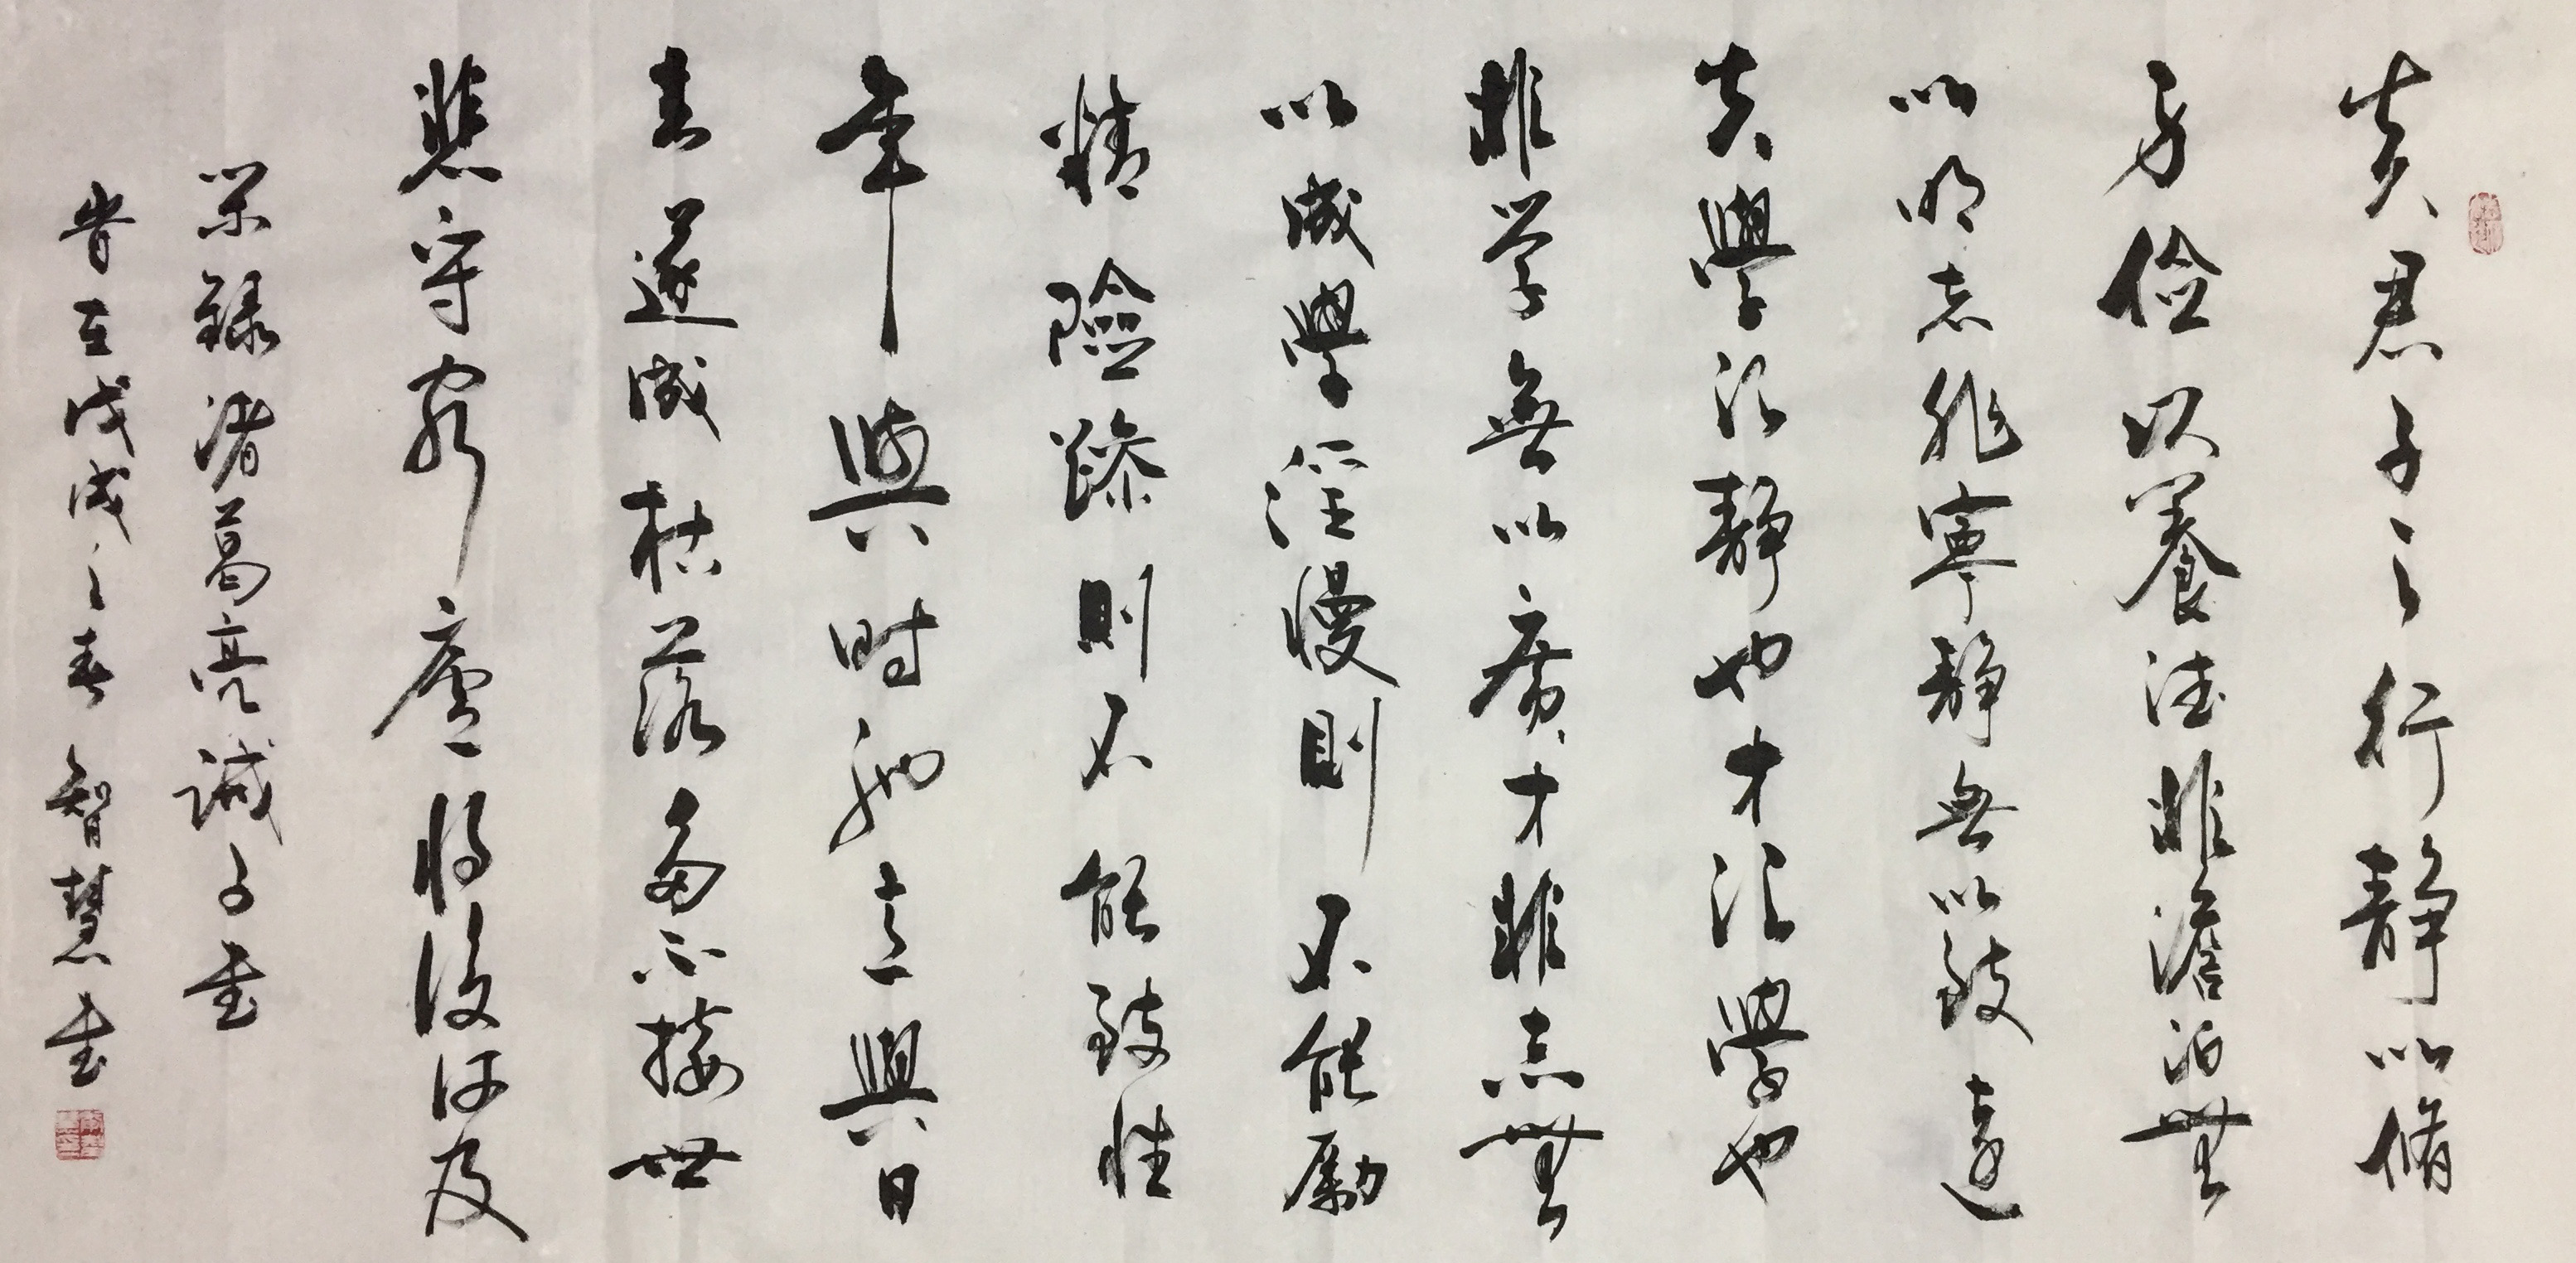 夫君子之行靜以脩
身儉以養德非澹泊無
以明志非寧靜無以致遠
夫學須靜也才須學也
非学無以廣才非志無
以成學淫慢則不能勵
精險躁則不能致性
年與時馳意與日
去遂成枯落多不接世
悲守窮廬將復何及
錄諸葛亮誡子書
旹在戊戌之春智慧書